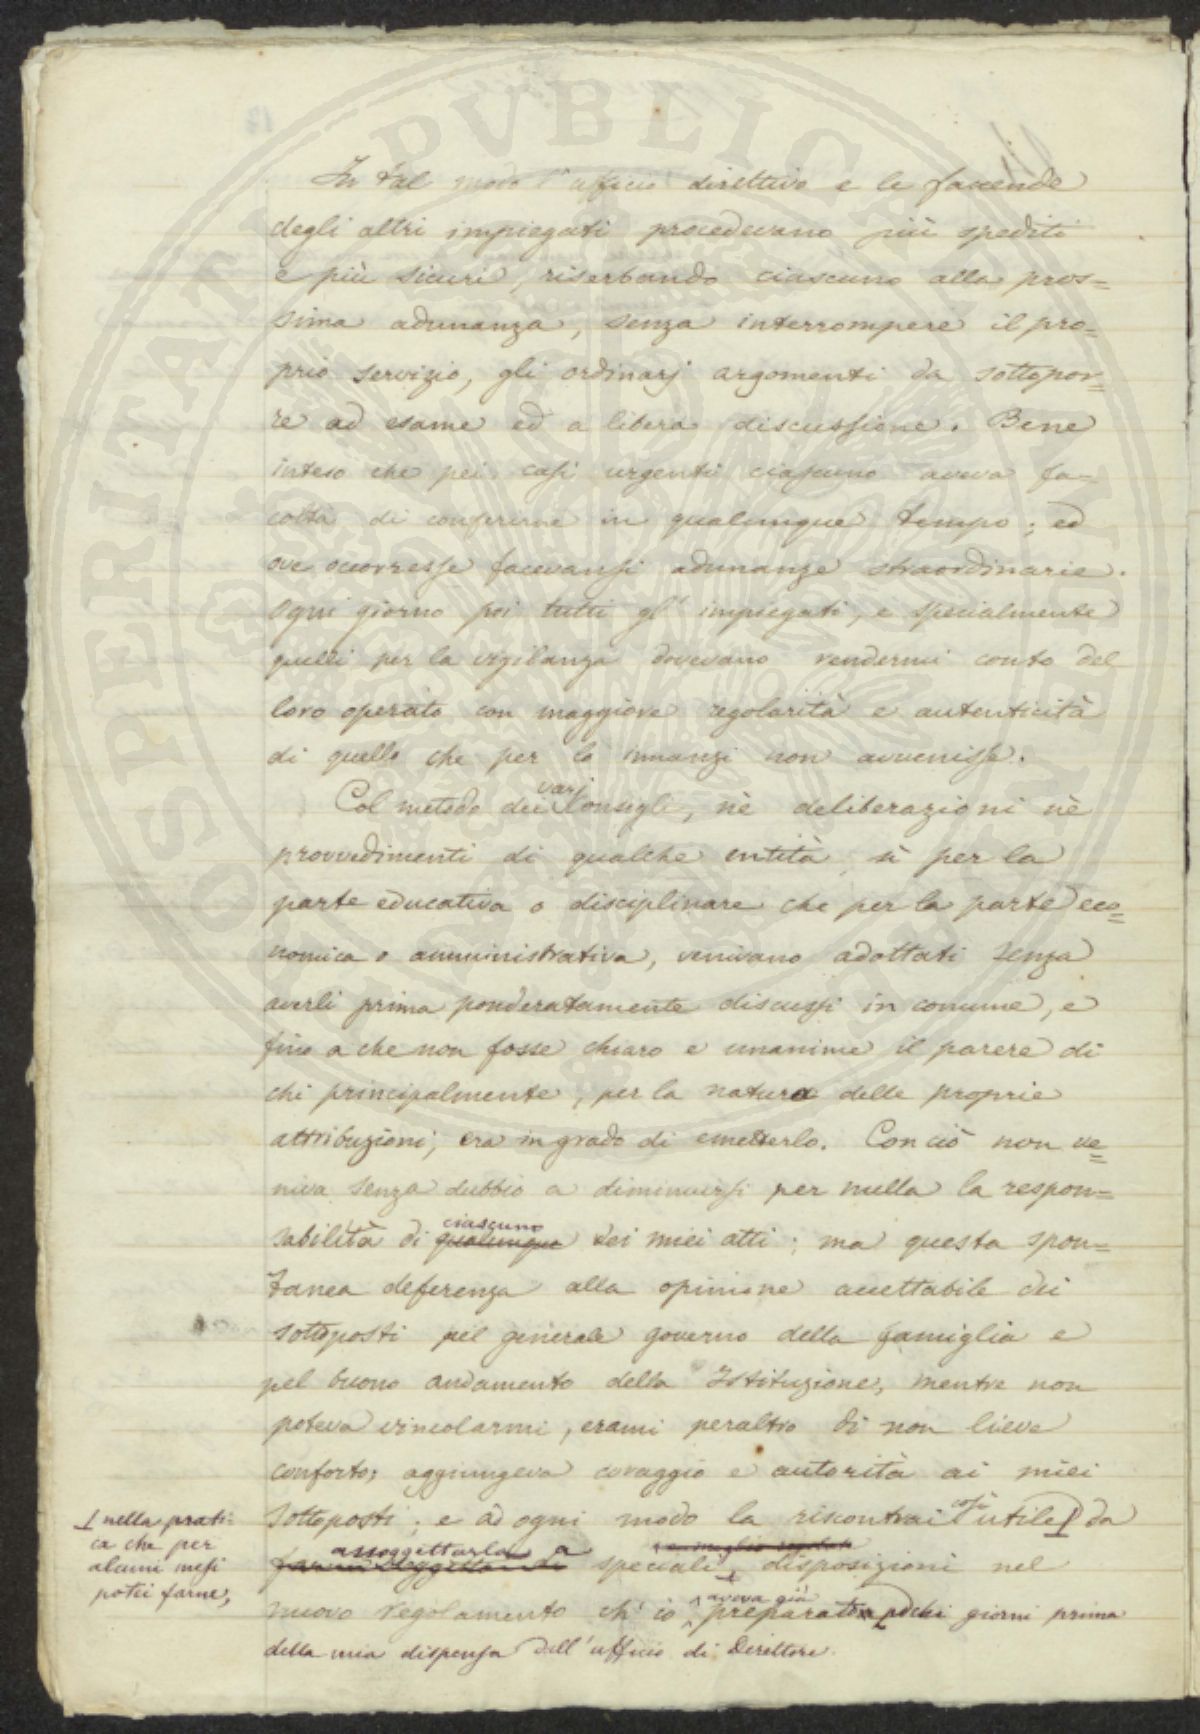 In tal modo l'ufficio direttivo e le faccende
degli altri impiegati procedevano più spediti
e più sicuri, riserbando ciascuno alla pros=
sima adunanza, senza interrompere il pro=
prio servizio, gli ordinarj argomenti da sottopor=
re ad esame ed a libera discussione. Bene
inteso che pei casi urgenti ciascuno aveva fa=
coltà di conferirne in qualunque tempo; ed
ove occorresse facevansi adunanze straordinarie.
Ogni giorno poi tutti gl'impiegati, e specialmente
quelli per la vigilanza dovevano rendermi conto del
loro operato con maggiore regolarità e autenticità
di quello che per lo innanzi non avvenisse.
Col metodo dei varj Consigli, nè deliberazioni nè
provvedimenti di qualche entità, sì per la
parte educativa o disciplinare che per la parte eco=
nomica o amministrativa, venivano adottati senza
averli prima ponderatamente discussi in comune, e
fino a che non fosse chiaro e unanime il parere di
chi principalmente, per la natura delle proprie
attribuzioni, era in grado di emetterlo. Con ciò non ve=
niva senza dubbio a diminuirsi per nulla la respon=
sabilità di qualunque ciascuno dei miei atti; ma questa spon=
tanea deferenza alla opinione accettabile dei
sottoposti pel generale governo della famiglia e
pel buono andamento della Istituzione, mentre non
poteva vincolarmi, erami peraltro di non lieve
conforto; aggiungeva coraggio e autorità ai miei
sottoposti; e ad ogni modo la riscontrai così utile da
assoggettarla a speciali disposizioni nel
nuovo regolamento ch'io aveva già preparato pochi giorni prima
della mia dispensa dall'ufficio di Direttore.
nella prati=
ca che per
alcuni mesi
potei farne,
PROSPERITATI PVBLICAE